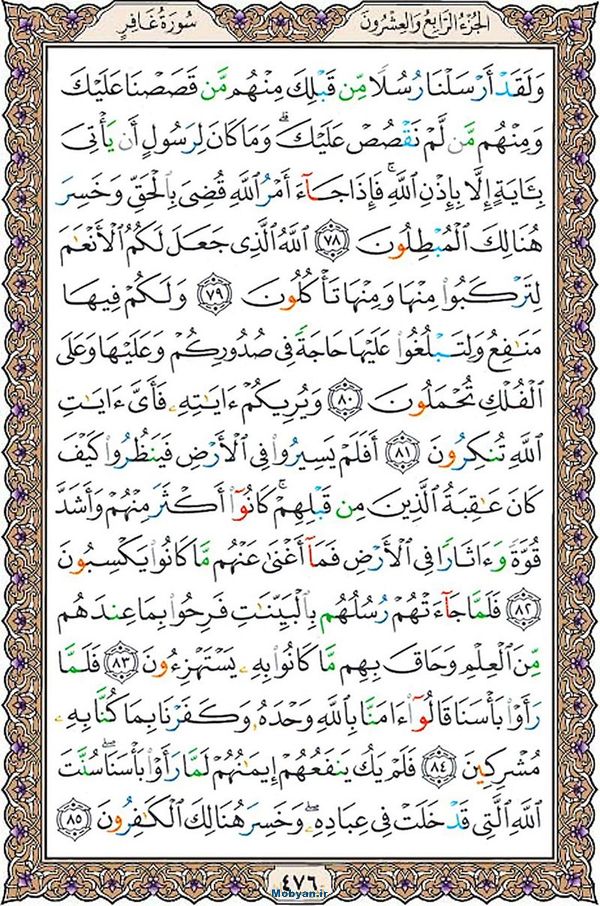 الجُزءُ الرَّابِعُ وَالعِشْرُونَ
سُورَةُ غَافِرٍ
وَلَقَدۡ أَرۡسَلۡنَا رُسُلٗا مِّن قَبۡلِكَ مِنۡهُم مَّن قَصَصۡنَا عَلَيۡكَ
وَمِنۡهُم مَّن لَّمۡ نَقۡصُصۡ عَلَيۡكَۗ وَمَا كَانَ لِرَسُولٍ أَن يَأۡتِيَ
بِـَٔايَةٍ إِلَّا بِإِذۡنِ ٱللَّهِۚ فَإِذَا جَآءَ أَمۡرُ ٱللَّهِ قُضِيَ بِٱلۡحَقِّ وَخَسِرَ
هُنَالِكَ ٱلۡمُبۡطِلُونَ ٧٨ ٱللَّهُ ٱلَّذِي جَعَلَ لَكُمُ ٱلۡأَنۡعَٰمَ
لِتَرۡكَبُواْ مِنۡهَا وَمِنۡهَا تَأۡكُلُونَ ٧٩ وَلَكُمۡ فِيهَا
مَنَٰفِعُ وَلِتَبۡلُغُواْ عَلَيۡهَا حَاجَةٗ فِي صُدُورِكُمۡ وَعَلَيۡهَا وَعَلَى
ٱلۡفُلۡكِ تُحۡمَلُونَ ٨٠ وَيُرِيكُمۡ ءَايَٰتِهِۦ فَأَيَّ ءَايَٰتِ
ٱللَّهِ تُنكِرُونَ ٨١ أَفَلَمۡ يَسِيرُواْ فِي ٱلۡأَرۡضِ فَيَنظُرُواْ كَيۡفَ
كَانَ عَٰقِبَةُ ٱلَّذِينَ مِن قَبۡلِهِمۡۚ كَانُوٓاْ أَكۡثَرَ مِنۡهُمۡ وَأَشَدَّ
قُوَّةٗ وَءَاثَارٗا فِي ٱلۡأَرۡضِ فَمَآ أَغۡنَىٰ عَنۡهُم مَّا كَانُواْ يَكۡسِبُونَ
٨٢ فَلَمَّا جَآءَتۡهُمۡ رُسُلُهُم بِٱلۡبَيِّنَٰتِ فَرِحُواْ بِمَا عِندَهُم
مِّنَ ٱلۡعِلۡمِ وَحَاقَ بِهِم مَّا كَانُواْ بِهِۦ يَسۡتَهۡزِءُونَ ٨٣ فَلَمَّا
رَأَوۡاْ بَأۡسَنَا قَالُوٓاْ ءَامَنَّا بِٱللَّهِ وَحۡدَهُۥ وَكَفَرۡنَا بِمَا كُنَّا بِهِۦ
مُشۡرِكِينَ ٨٤ فَلَمۡ يَكُ يَنفَعُهُمۡ إِيمَٰنُهُمۡ لَمَّا رَأَوۡاْ بَأۡسَنَاۖ سُنَّتَ
ٱللَّهِ ٱلَّتِي قَدۡ خَلَتۡ فِي عِبَادِهِۦۖ وَخَسِرَ هُنَالِكَ ٱلۡكَٰفِرُونَ ٨٥
٤٧٦
Mobyan.ir